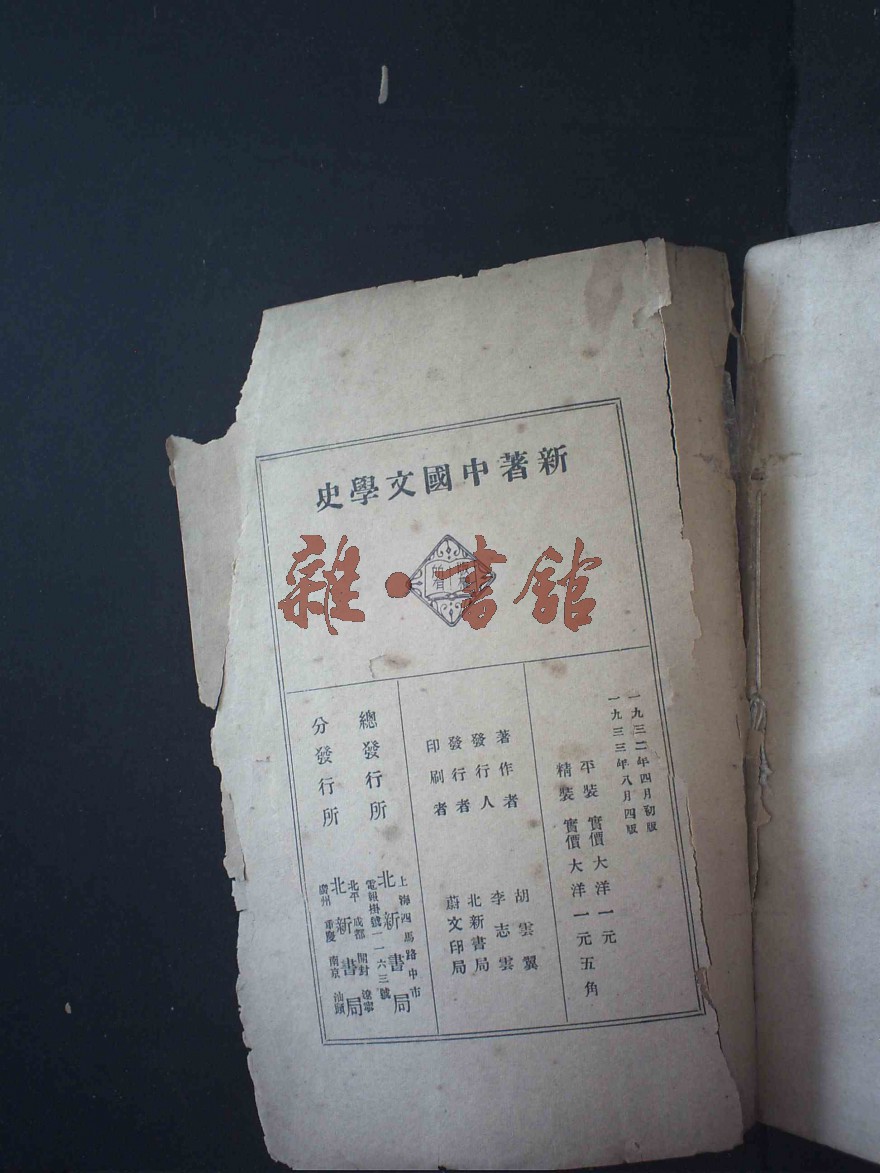 新著中國文學史
雜·書館
一九三二年四月初版
一九三三年八月四版
平裝 實價大洋一元
精裝 實價大洋一元五角
著作者 胡雲翼
發行人 李志雲
發行者 北新書局
印刷者 蔚文印局
總發行所 上海四馬路中市
北新書局
電報掛號一一六三號
分發行所 北平 成都 開封 遼寧
北新書局
廣州 重慶 南京 汕頭